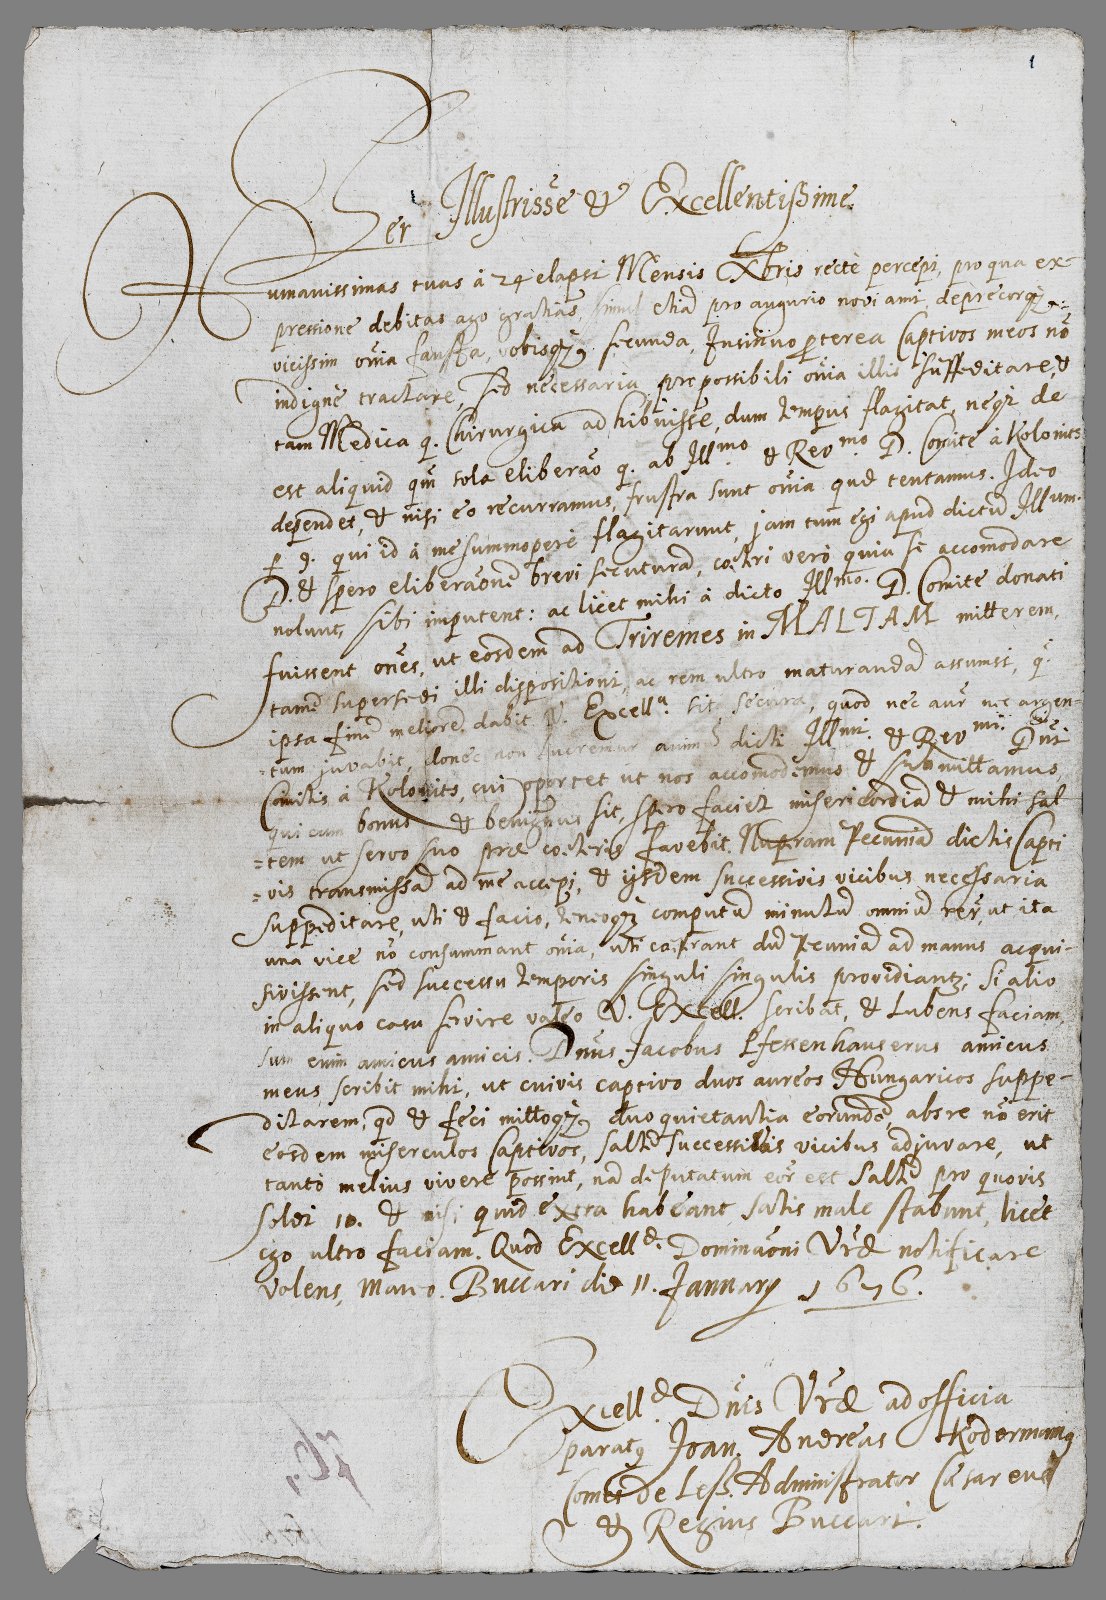 1
Per Illustrissē & Excellentissime.
Humanissimas tuas à 24 elapsi Mensis Xbris recte percepi, pro qua ex-
pressione debitas ago gratias, simul etiā pro augurio novi ani, deprecorq3
vicissim oīa fausta, vobisq3 secunda, Insinuo ꝑterea Captivos meos nō
indigne tractare, sed necessaria, pro possibili oīa illis suffeditare, &
tam Medica q. Chirurgica adhibuisse, dum tempus flagitat, neq3 de
est aliquid qm̄ sola eliberāo q. ab Illmo. & Revmo. D. Comite à Kolonits
dependet, & nisi eo recurramus, frustra sunt oīa quæ tentamus. Ideo
p 9. qui id à me summopere flagitarunt, jam tum egi apud dictū Illum.
D. & spero eliberāonē brevi secuturā, cœtri vero quia se accomodare
nolunt, sibi imputent: ac licet mihi à dicto Illmo. D. Comite donati
fuissent oēs, ut eosdem ad Triremes in MALTAM mitterem,
tamē supersedi illi dispositioni, ac rem ultro maturandā assumsi, q.
ipsa finē meliorē dabit. V. Excella. sit secura, quod nec aur̄ nec argen-
=tum juvabit, donec non lucremur animū dicti Illmi. & Revmi. Dni
Comitis à Kolonits, cui oportet ut nos accomodemus & submittamus,
qui cum bonus & benignus sit, spero faciet misericordiā & mihi sal
=tem ut servo suo præ cœteris favebit. Nuperam Pecuniā dictis Capti
=vis transmissā ad me accepi, & ijsdem successivis vicibus necessaria
suppeditare, uti & facio, teneoq3 computū minutū omniū rer̄, ut ita
una vice nō consummant oīa, uti cœprant dū Pecuniā ad manus acqui-
sivissent, sed successu temporis singuli singulis providiantz; Si alio
in aliquo casu servire valeo V. Excell. scribat, & Lubens faciam,
sum enim amicus amicis. Dnus Jacobus Pfessenhauserus amicus
meus, scribit mihi, ut cuivis captivo duos aureos Hungaricos suppe-
ditarem, qd & feci mittoq3 duo quietantia eorundē, abs re nō erit
eosdem miserculos Captivos, saltē successivis vicibus adjuvare, ut
tanto melius vivere possint, nā deputatum eor̄ est saltē pro quovis
soldi 10. & nisi quid extra habeant, satis male stabunt, licet
ego ultro faciam. Quod Excellæ. Dominaōni Vræ notificare
volens, maneo. Buccari die 11. January 1676.
Excellæ. Dnis Vræ ad officia
paratq Joan. Andreas Kodermanq
Comes de Less. Administrator Cæsareus
& Regius Buccari.